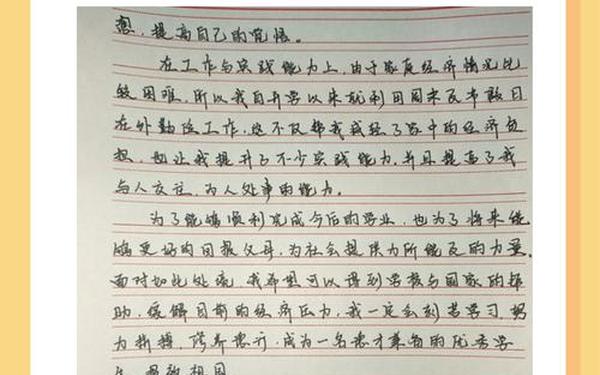 想，提高自己的觉悟。
在工作与实践能力上，由于家庭经济情况比
较困难，所以我自开学以来就利用周末及节假日
在外勤俭工作，这不仅帮我减轻了家中的经济负
担，也让我提升了不少实践能力，并且提高了我
与人交往，为人处事的能力。
为了能够顺利完成今后的学业，也为了将来能
够更好的回报父母，为社会提供力所能及的力量。
面对如此处境，我希望可以得到学校与国家的帮
助，缓解目前的经济压力，我一定会刻苦学习，努
力拼搏，修养德行，成为一名德才兼备的优秀学
生，报效祖国